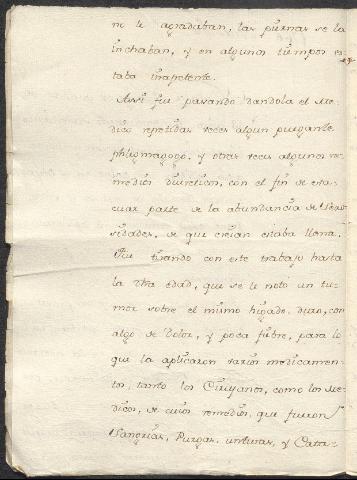 no le agradaban, las piernas se la
inchaban, y en algunos tiempos es-
taba inapetente.
Assi fue pasando dandola el Me-
dico repetidas veces algun purgante
phlegmagogo, y otras veces algunos re-
medios diureticos, con el fin de eva-
cuar parte de la abundancia de sero-
sidades, de que creian estaba llena.
Fue tirando con este trabajo hasta
la dha edad, que se le noto un tu-
mor sobre el mismo higado, duro, con
algo de dolor, y poca fiebre, para lo
que la aplicaron varios medicamen-
tos, tanto los Cirujanos, como los Me-
dicos, de cuios remedios, que fueron
Sangrias, Purgas, unturas, y Cata-